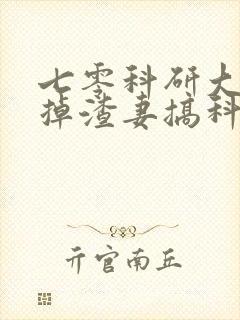 七零科研大
掉渣妻搞科
亓官南丘